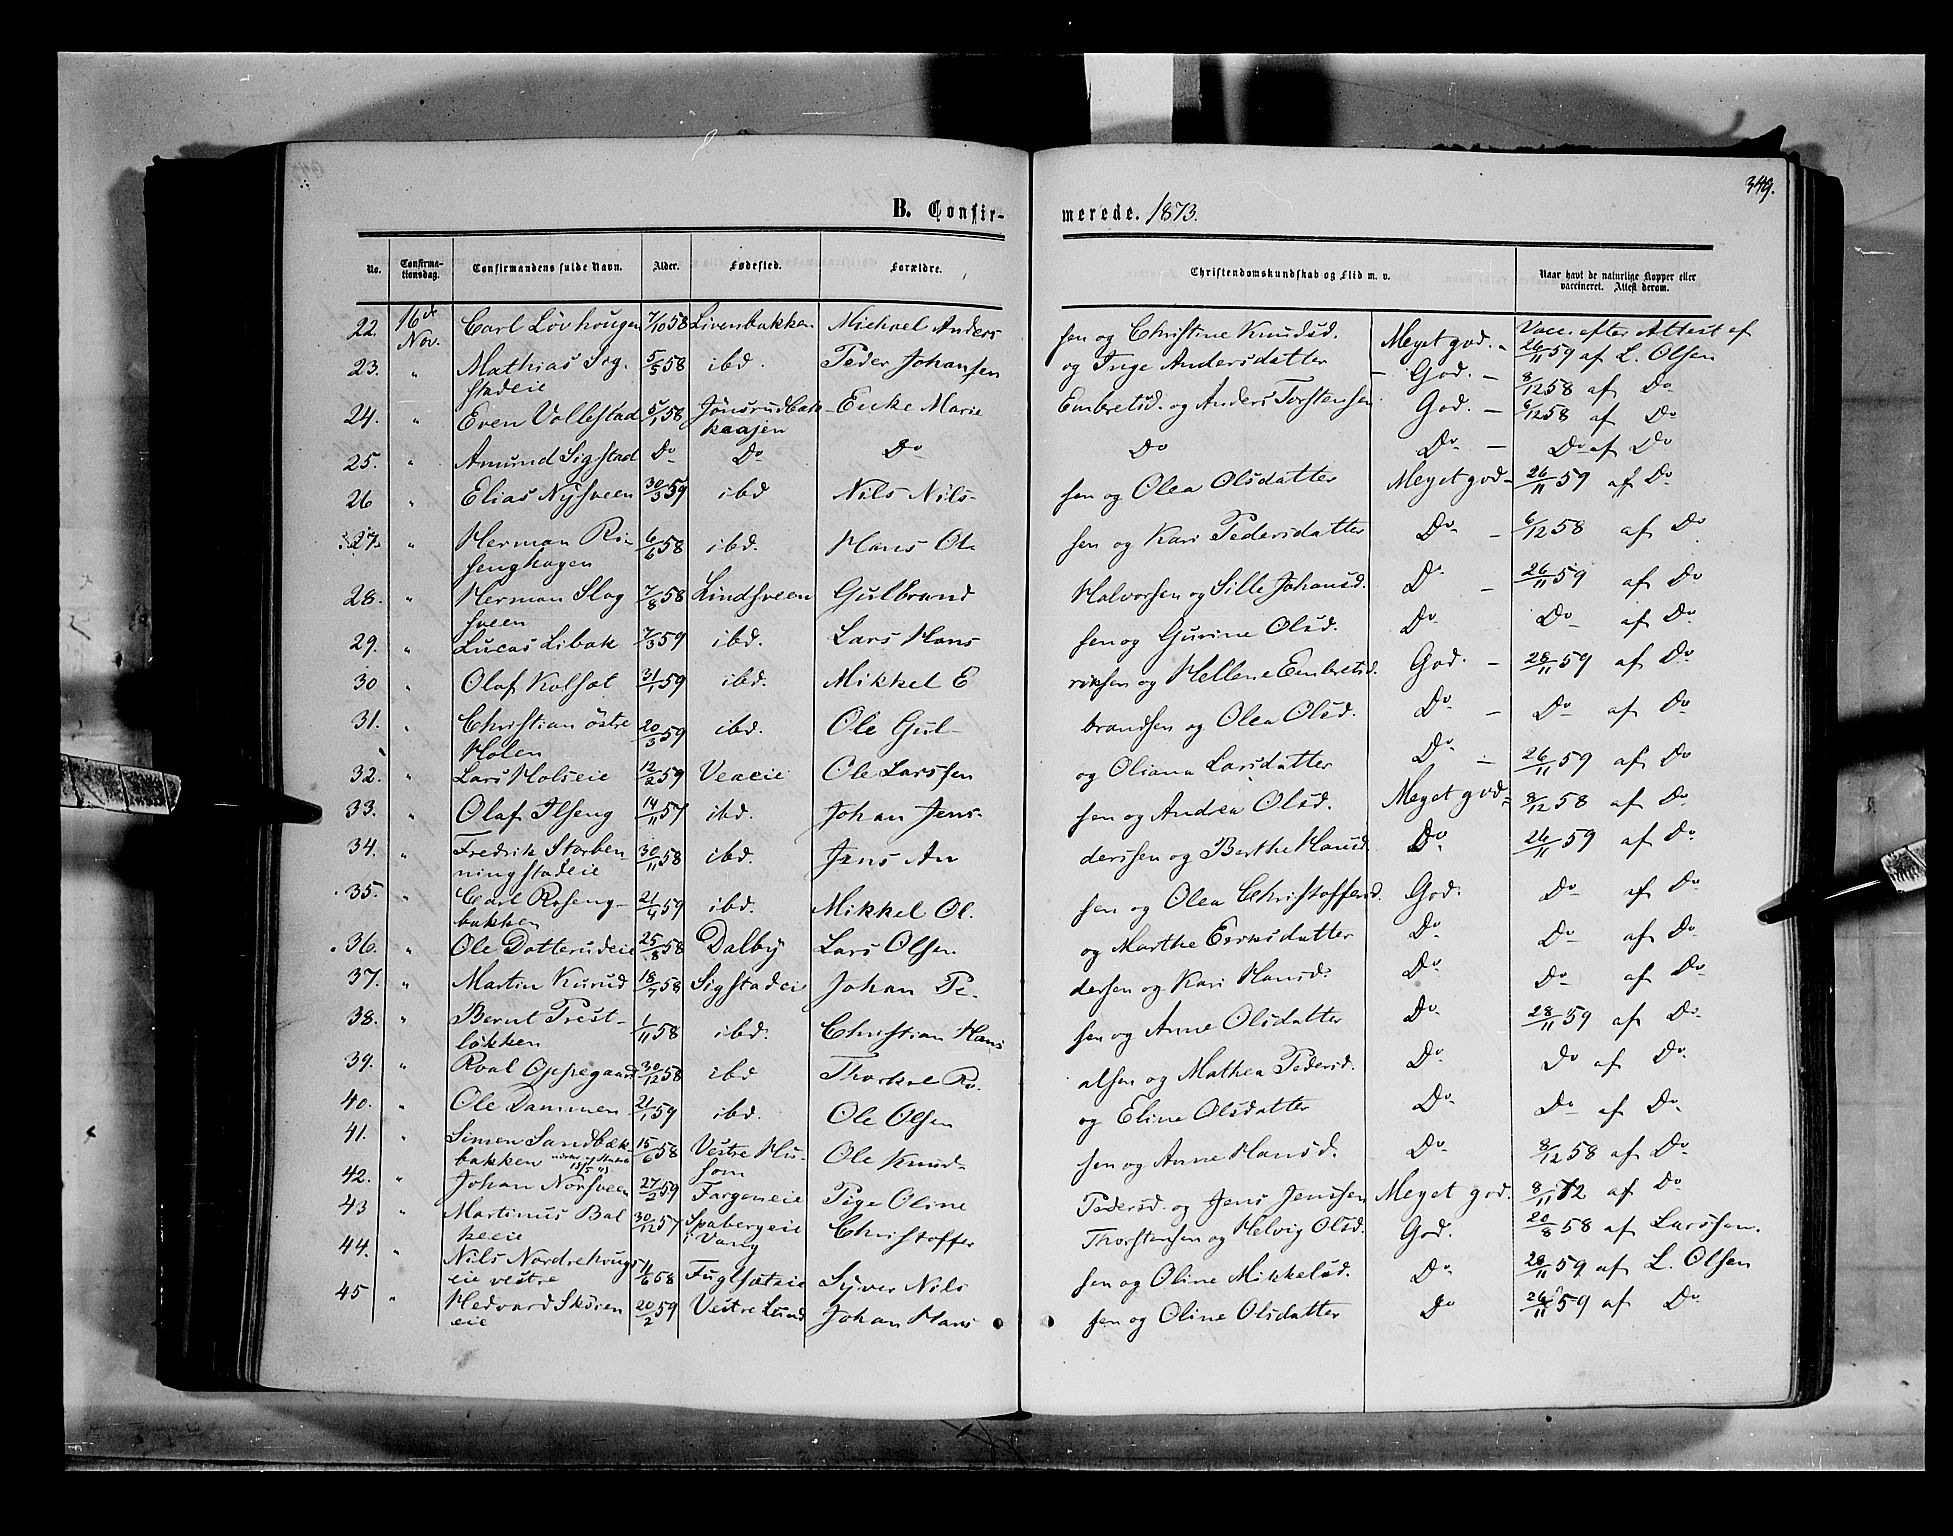 349.
B. Confir- merede. 1873.
No. Confirma-tionsdag. Confirmandens fulde Navn. Alder. Fødested. Forældre. Christendomskundskab og Flid m. v. Naar havt de naturlige Kopper eller vaccineret. Attest derom.
22. 16de Nov. Carl Løvhougen 7/10 58 Livenbakken Michael Anders sen og Christine Knudsd. Meget god. - Vacc. efter Attest af 26/11 59 af L. Olsen
23. " Mathias Sig- stadeie 5/5 58 ibd. Peder Johansen og Inge Andersdatter - God. - 8/12 58 af Do
24. " Even Vollestad 5/1 58 Jønsrudbak- Enke Marie Embretsd. og Anders Torstensen God. - 6/12 58 af Do
25. " Amund Sigstad Do Do Do Do Do - Do af Do
26 " Elias Nysveen 30/3 59 ibd Nils Nils- sen og Olea Olsdatter Meget god - 26/11 59 af Do
27. " Herman Ri- senghagen 6/6 58 ibd. Hans Ol- sen og Kari Pedersdatter Do - 6/12 58 af Do
28. " Herman Slag sveen 7/8 58 Lindsveen Gulbrand Halvorsen og Sille Johansd. Do - 26/11 59 af Do
29. " Lucas Libak 7/3 59 ibd. Lars Hans sen og Gurine Olsd. Do - Do af Do
30 " Olaf Kolsat 31/1 59 ibd. Mikkel E riksen og Hellene Embretsd. God. - 28/11 59 af Do
31. " Christian østre Holen 20/3 59 ibd. Ole Gul- brandsen og Olea Olsd. Do - Do af Do
32. " Lars Holseie 12/2 59 Veaeie Ole Larssen og Oliana Larsdatter Do - 26/11 59 af Do
33. " Olaf Ilseng 14/11 57 ibd. Johan Jens- sen og Andrea Olsd. Meget god - 8/12 58 af Do
34. " Fredrik Storben ningstadeie 30/11 58 ibd. Jens An derssen og Berthe Hansd. Do 26/11 59 af Do
35. " Carl Roseng- bakken 21/4 59 ibd. Mikkel Ol. sen og Olea Christoffersd. God. Do af Do
36. " Ole Dotterudeie 25/8 58 Dalby Lars Olsen og Marthe Eriksdatter Do Do af Do
37. " Martin Kurud 18/7 58 Sigstadeie Johan Pe- dersen og Kari Hansd. Do Do af Do
38. " Bernt Prest- løkken 1/11 58 ibd. Christian Hans sen og Anne Olsdatter Do 28/11 59 af Do
39. " Roal Oppegaard 30/12 58 ibd Thorkel Ro- alsen og Mathea Pedersd. Do Do af Do
40. " Ole Dammen 21/1 59 ibd. Ole Olsen og Eline Olsdatter Do Do af Do
41. " Simen Sandbæk- bakken 15/6 58 Vestre Hu- som Ole Knud- sen og Anne Hansd. Do 8/12 58 af Do
42. " Johan Norsveen 27/2 59 Fargeneie Pige Oline Pedersd. og Jens Jenssen Meget god. 8/11 72 af Do
43 " Martinus Bal keeie 30/12 57 Spabergeie i Vang Christoffer Thorstensen og Helvig Olsd. God. 20/8 58 af Larssen.
44. " Nils Nordrehougs eie vestre 11/6 58 Fuglsæteie Syver Nils sen og Oline Mikkelsd. Do 28/11 59 af L. Olsen
45 " Hedvard Skøren eie 20/2 59 Vestre Lund Johan Hans sen og Oline Olsdatter Do 26/11 59 af Do